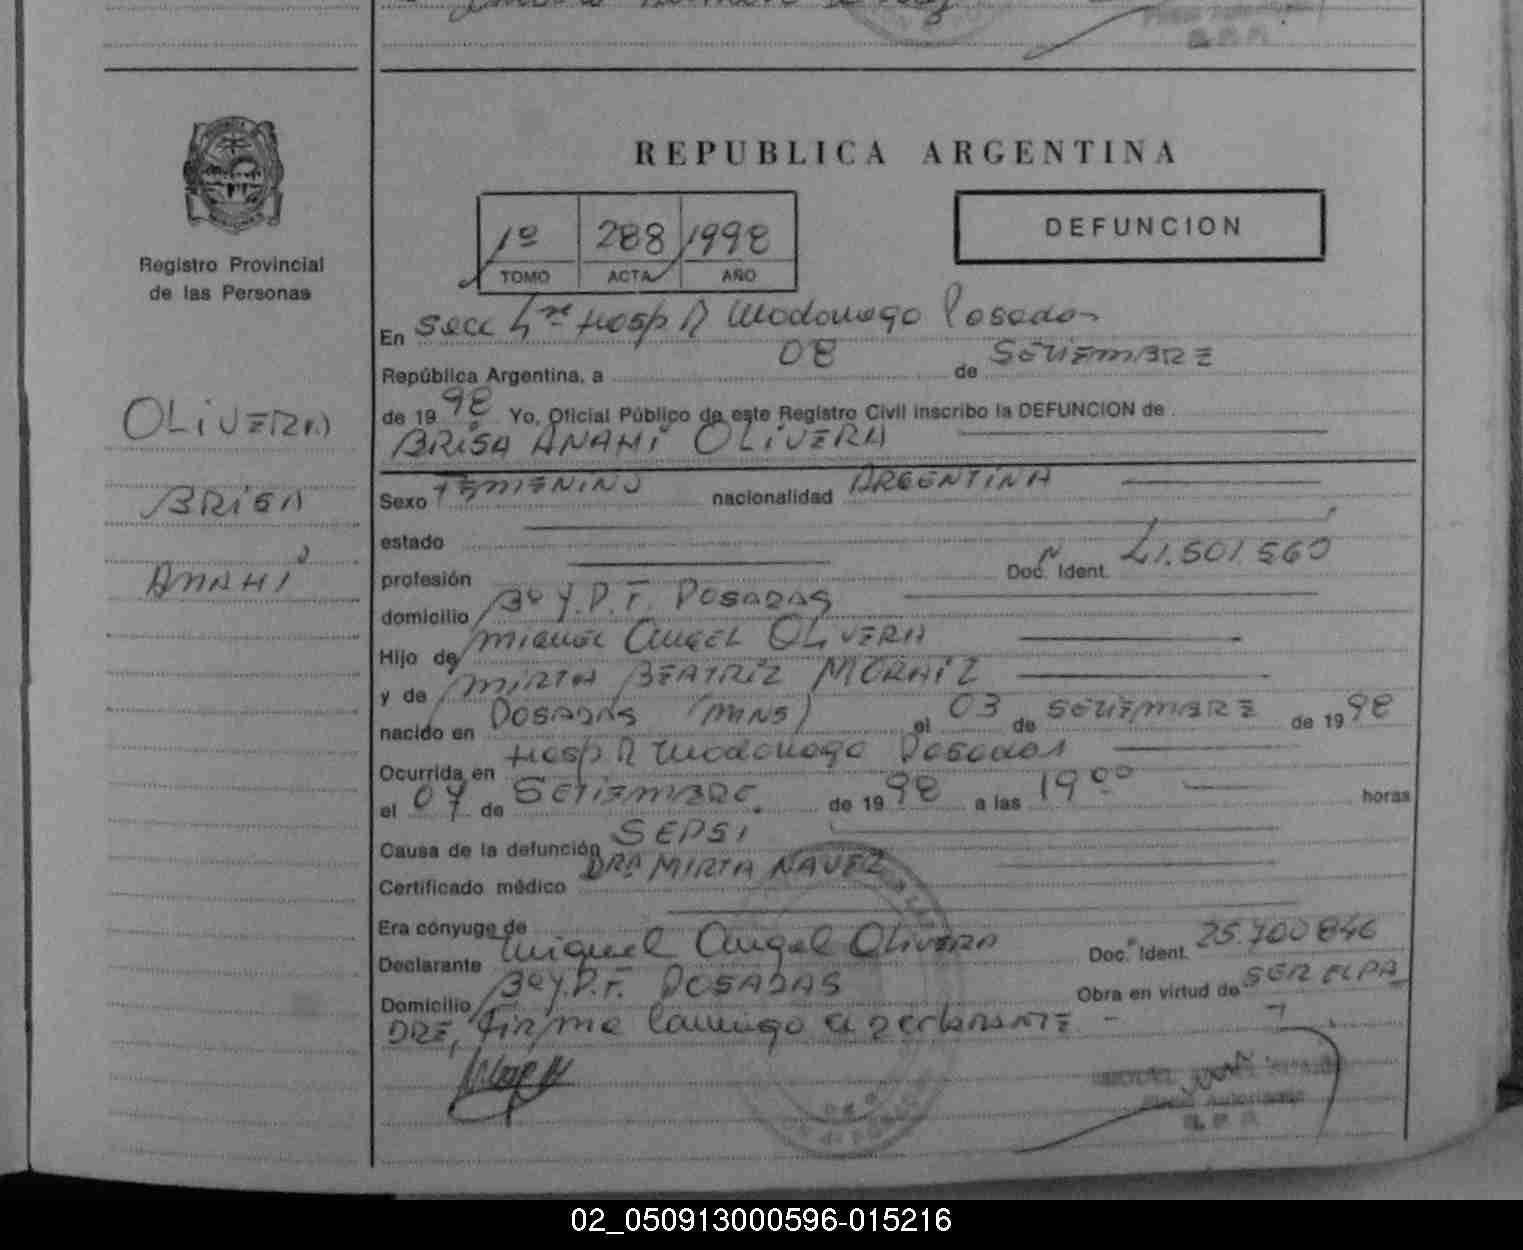 REPUBLICA ARGENTINA
1º 288 1998
TOMO ACTA AÑO
DEFUNCION
Registro Provincial
de las Personas
OLIVERA
BRISA
ANAHÍ
En Secc 4ta Hosp R Madariaga Posadas
República Argentina, a 08 de SETIEMBRE
de 1998 Yo, Oficial Público de este Registro Civil inscribo la DEFUNCION de
BRISA ANAHÍ OLIVERA
Sexo FEMENINO nacionalidad ARGENTINA
estado
profesión Doc. Ident. 41.501.560
domicilio Bº Y.P.F. POSADAS
Hijo de MIGUEL ANGEL OLIVERA
y de MIRTA BEATRIZ MORAIZ
nacido en POSADAS (MNS) el 03 de SETIEMBRE de 1998
Ocurrida en Hosp R Madariaga Posadas
el 07 de SETIEMBRE de 1998 a las 19 00 horas
Causa de la defunción SEPSI
Certificado médico DRA MIRTA
Era cónyuge de
Declarante Miguel Angel Olivera Doc. Ident. 25.700 846
Domicilio Bº Y.P.F. POSADAS Obra en virtud de SER EL PA
DRE, Firma conmigo el declarante
02_050913000596-015216